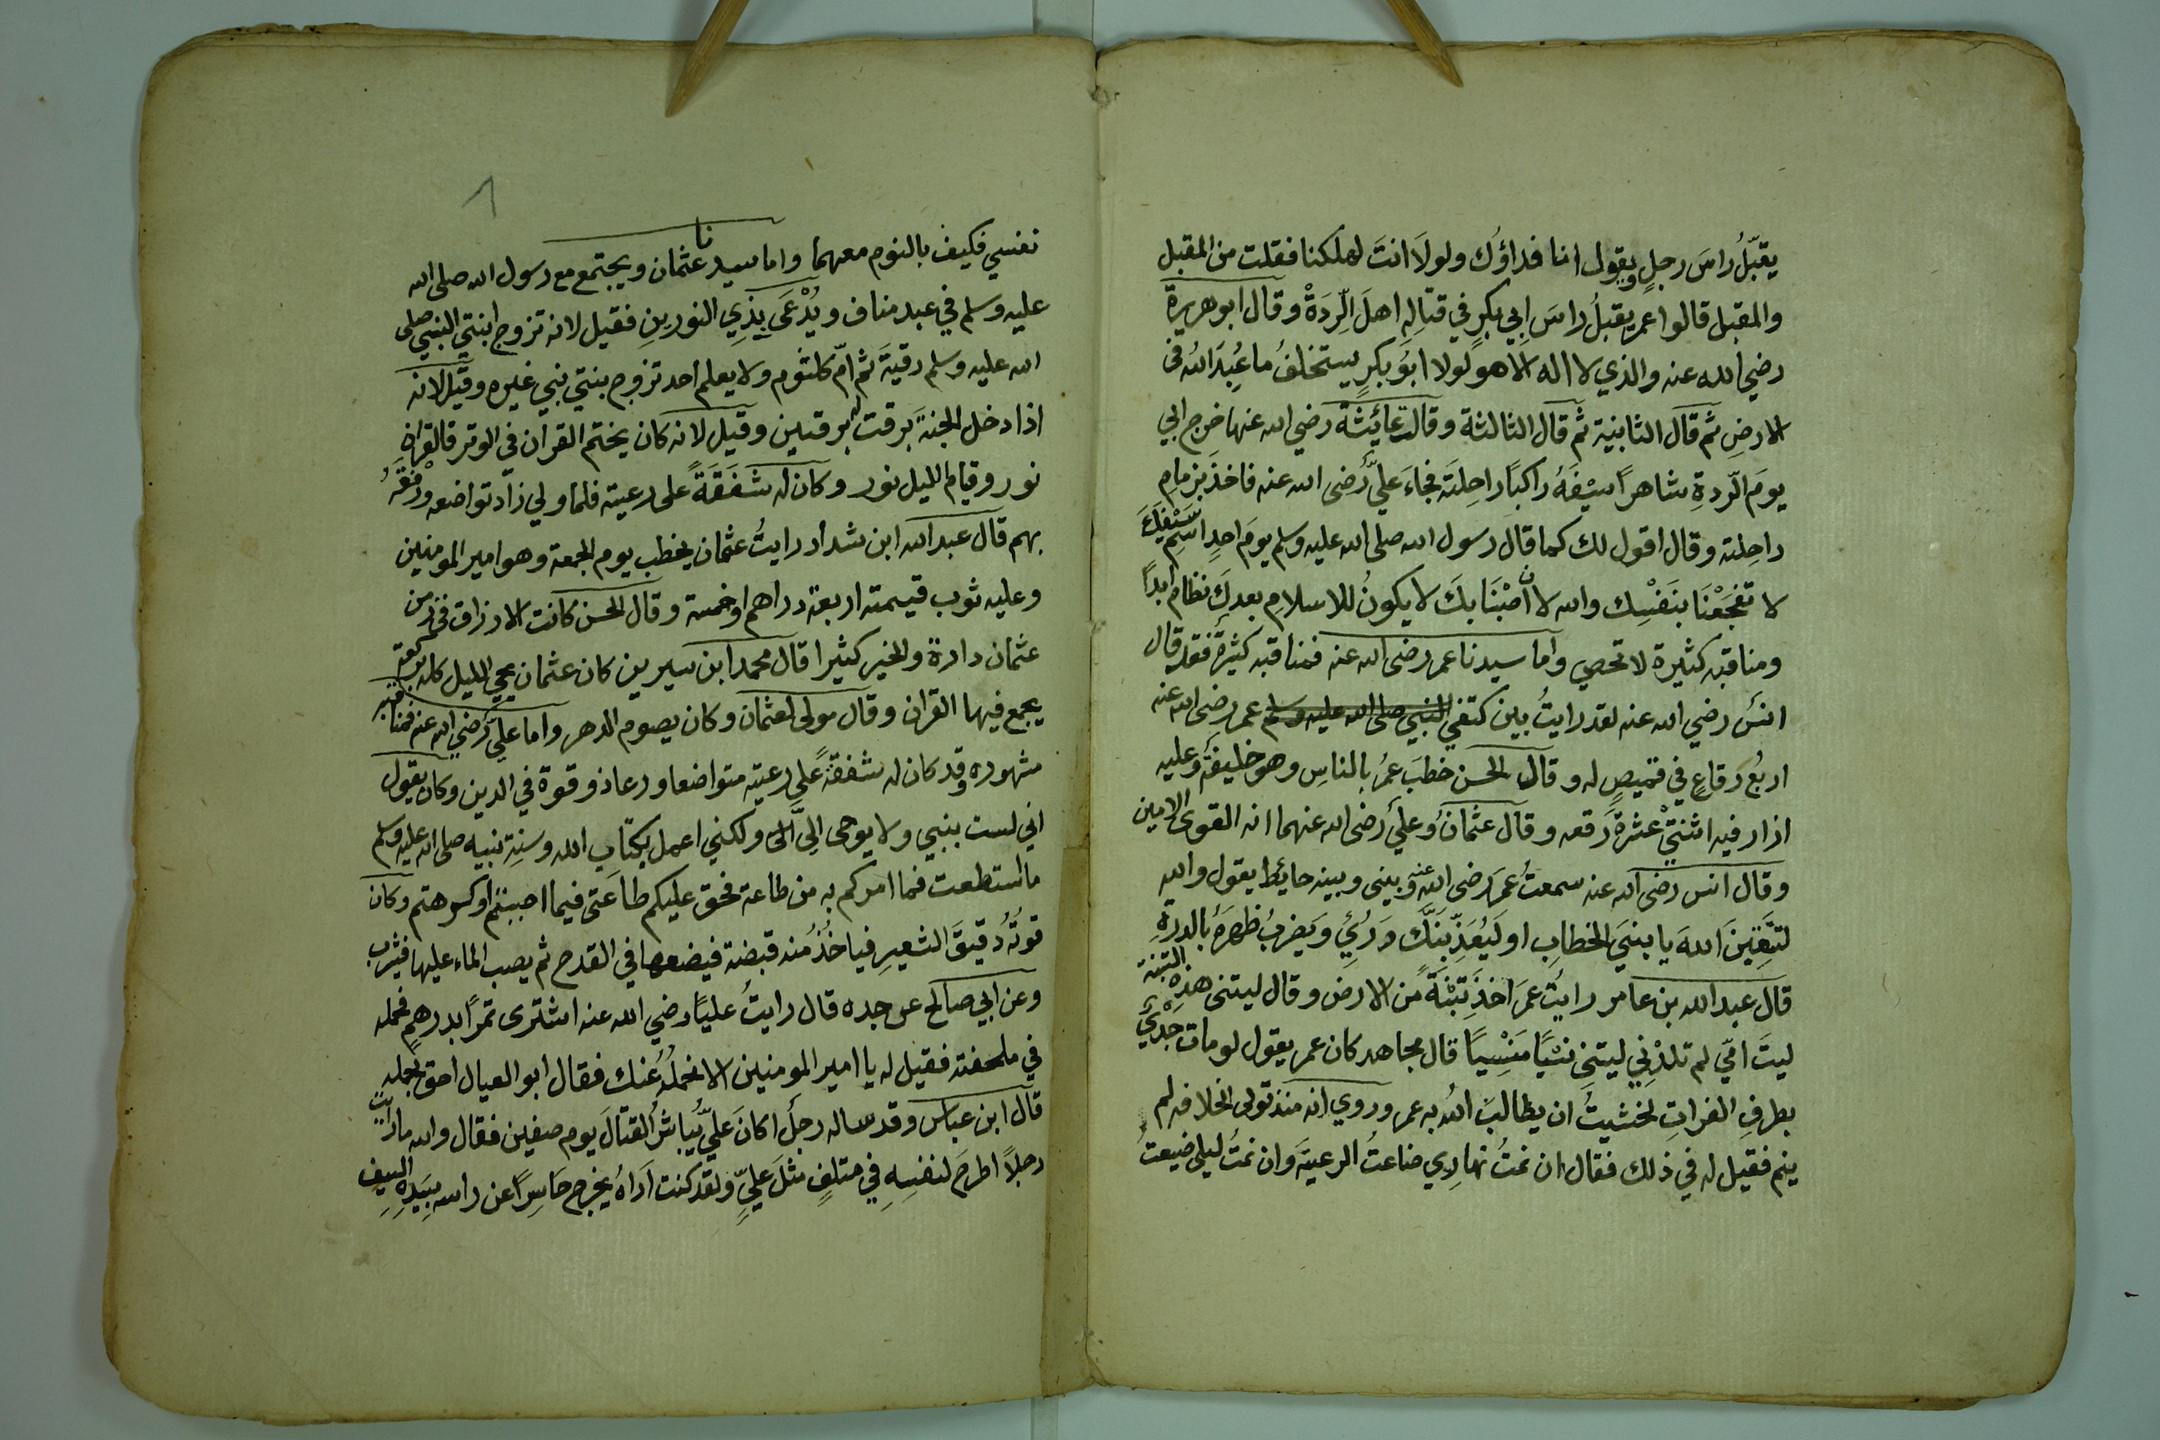 يقبّلُ راسَ رجلٍ ويقول انا فداؤك ولولا انتَ لهلكنا فقلت من المقبل
والمقبل قالوا عمر يقبلُ راسَ ابي بكرٍ في قتالهِ اهلَ الرِّدَةْ وقال ابوهريرة
رضي الله عنه والذي لا اله الا هو لولا ابوُ بكرٍ يستخلفُ ما عُبِدَ اللهُ فى
الارضِ ثم قال الثانية ثم قال الثالثة وقالت عائشة رضي الله عنها خرج ابي
يومَ الرّدةِ شاهراً سَيْفَهُ راكباً راحِلتَه فجاءَ عليٌّ رضى الله عنه فاخذَ بزمامِ
راحِلته وقال اقول لك كما قال رسول الله صلى الله عليه وسلم يومَ احدٍ اشِمْ سَيْفَكَ
لا تفْجَعْنَا بنَفْسِك والله لان اُصْبْنَا بكَ لا يكونُ للاسلامِ بعدكَ نظام ابداً
ومناقبه كثيرة لا تحصي واما سيدنا عمر رضى الله عنه فمناقبه كثيرةٌ فقد قال
انسٌ رضي الله عنه لقد رايتُ بين كتفي النبي صلى الله عليه وسلم عمر رضى الله عنه
اربعُ رقاعٍ في قميصٍ له وقال الحسن خطبَ عمرُ بالناسِ وهو خليفةٌ وعليه
ازار فيه اثنتيْ عشرةَ رَقعه وقال عثمانُ وعليٌ رضى الله عنهما انه القوى الامين
وقال انس رضى الله عنه سمعتُ عمرَ رضى الله عنه وبينى وبينه حايُط يقول والله
لتتَّقِيَنَ اللهَ يا بنيَ الخطابِ او ليُعَذِّبَنَّكَ وَرُئِي وَيَضربُ ظهرَهُ بالدرةِ
قال عبد الله بن عامر رايتُ عمرَ اخذَ تبْنَةً من الارض وقال ليتنى هذهِ التبنة
ليتَ امّي لم تلدْنِي ليتنى نسْيًا مَنْسِيًا قال مجاهد كان عمر يقول لومات جَدْيٌ
بطرفِ الفراتِ لخشيتُ ان يطالبَ اللهُ به عمر وروي انه منذ تولى الخلافه لم
ينم فقيل له في ذلك فقال ان نمتُ نهارِي ضاعتُ الرعيةَ وان نمتُ ليلى ضيعتُ
نفسي فكيف بالنوم معهما واما سيدنا عثمان ويجتمع مع رسول الله صلى الله
عليه وسلم في عبد مناف ويُدْعَى بِذِي النورينِ فقيل لانه تزوج ابنتي النبي صلى
الله عليه وسلم رقيةَ ثم امّ كلثوم ولا يعلم احد تزوج بنتي نبي غيره وقيل لانه
اذا دخل الجنةَ برقت له برقتين وقيل لانه كان يختم القران في الوتر فالقران
نور وقيام الليل نور وكان له شَفَقَةً على رعيته فلما ولي زاد تواضعه ورفقَهُ
بهم قال عبد الله ابن شداد رايتُ عثمان يخطب يوم الجمعة وهو امير المومنين
وعليه ثوب قيمته اربعة دراهم او خمسة وقال الحسن كانت الارزاق فى زمن
عثمان دارة والخير كثيرا قال محمد ابن سيرين كان عثمان يحيى الليل كله بركعة
يجمع فيها القران وقال مولى لعثمان وكان يصوم الدهر واما علي رضي الله عنه فمناقبه
مشهوره وقد كان له شفقةً علي رعيته متواضعا ورعا ذو قوة في الدين وكان يقول
اني لست بنبي ولا يوحى اليَّ ولكني اعمل بكتابِ الله وسنةِ نبيه صلى الله عليه وسلم
ما استطعت فما امركم به من طاعة فحق عليكم طاعتى فيما احببتم او كرهتم وكان
قوتُهُ دقيقَ الشعيرِ فياخذُ منه قبضة فيضعها في القدح ثم يصب الماء عليها فيشرب
وعن ابي صالح عن جده قال رايتُ علياً رضي الله عنه اشترى تمراً بدرهمٍ فحمله
في ملحفته فقيل له يا امير المومنين الا نحملُهُ عنك فقال ابو العيال احق بحمله
قال ابن عباس وقد ساله رجلٌ اكانَ عليٌّ يُباشُر القتالَ يوم صفين فقال والله ما رايت
رجلاً اطرحَ لنفسِهِ في متلفٍ مثلَ عليٍّ ولقد كنت اَراهُ يخرج حَاسِرًا عن راسه بيَدِهِ السيف